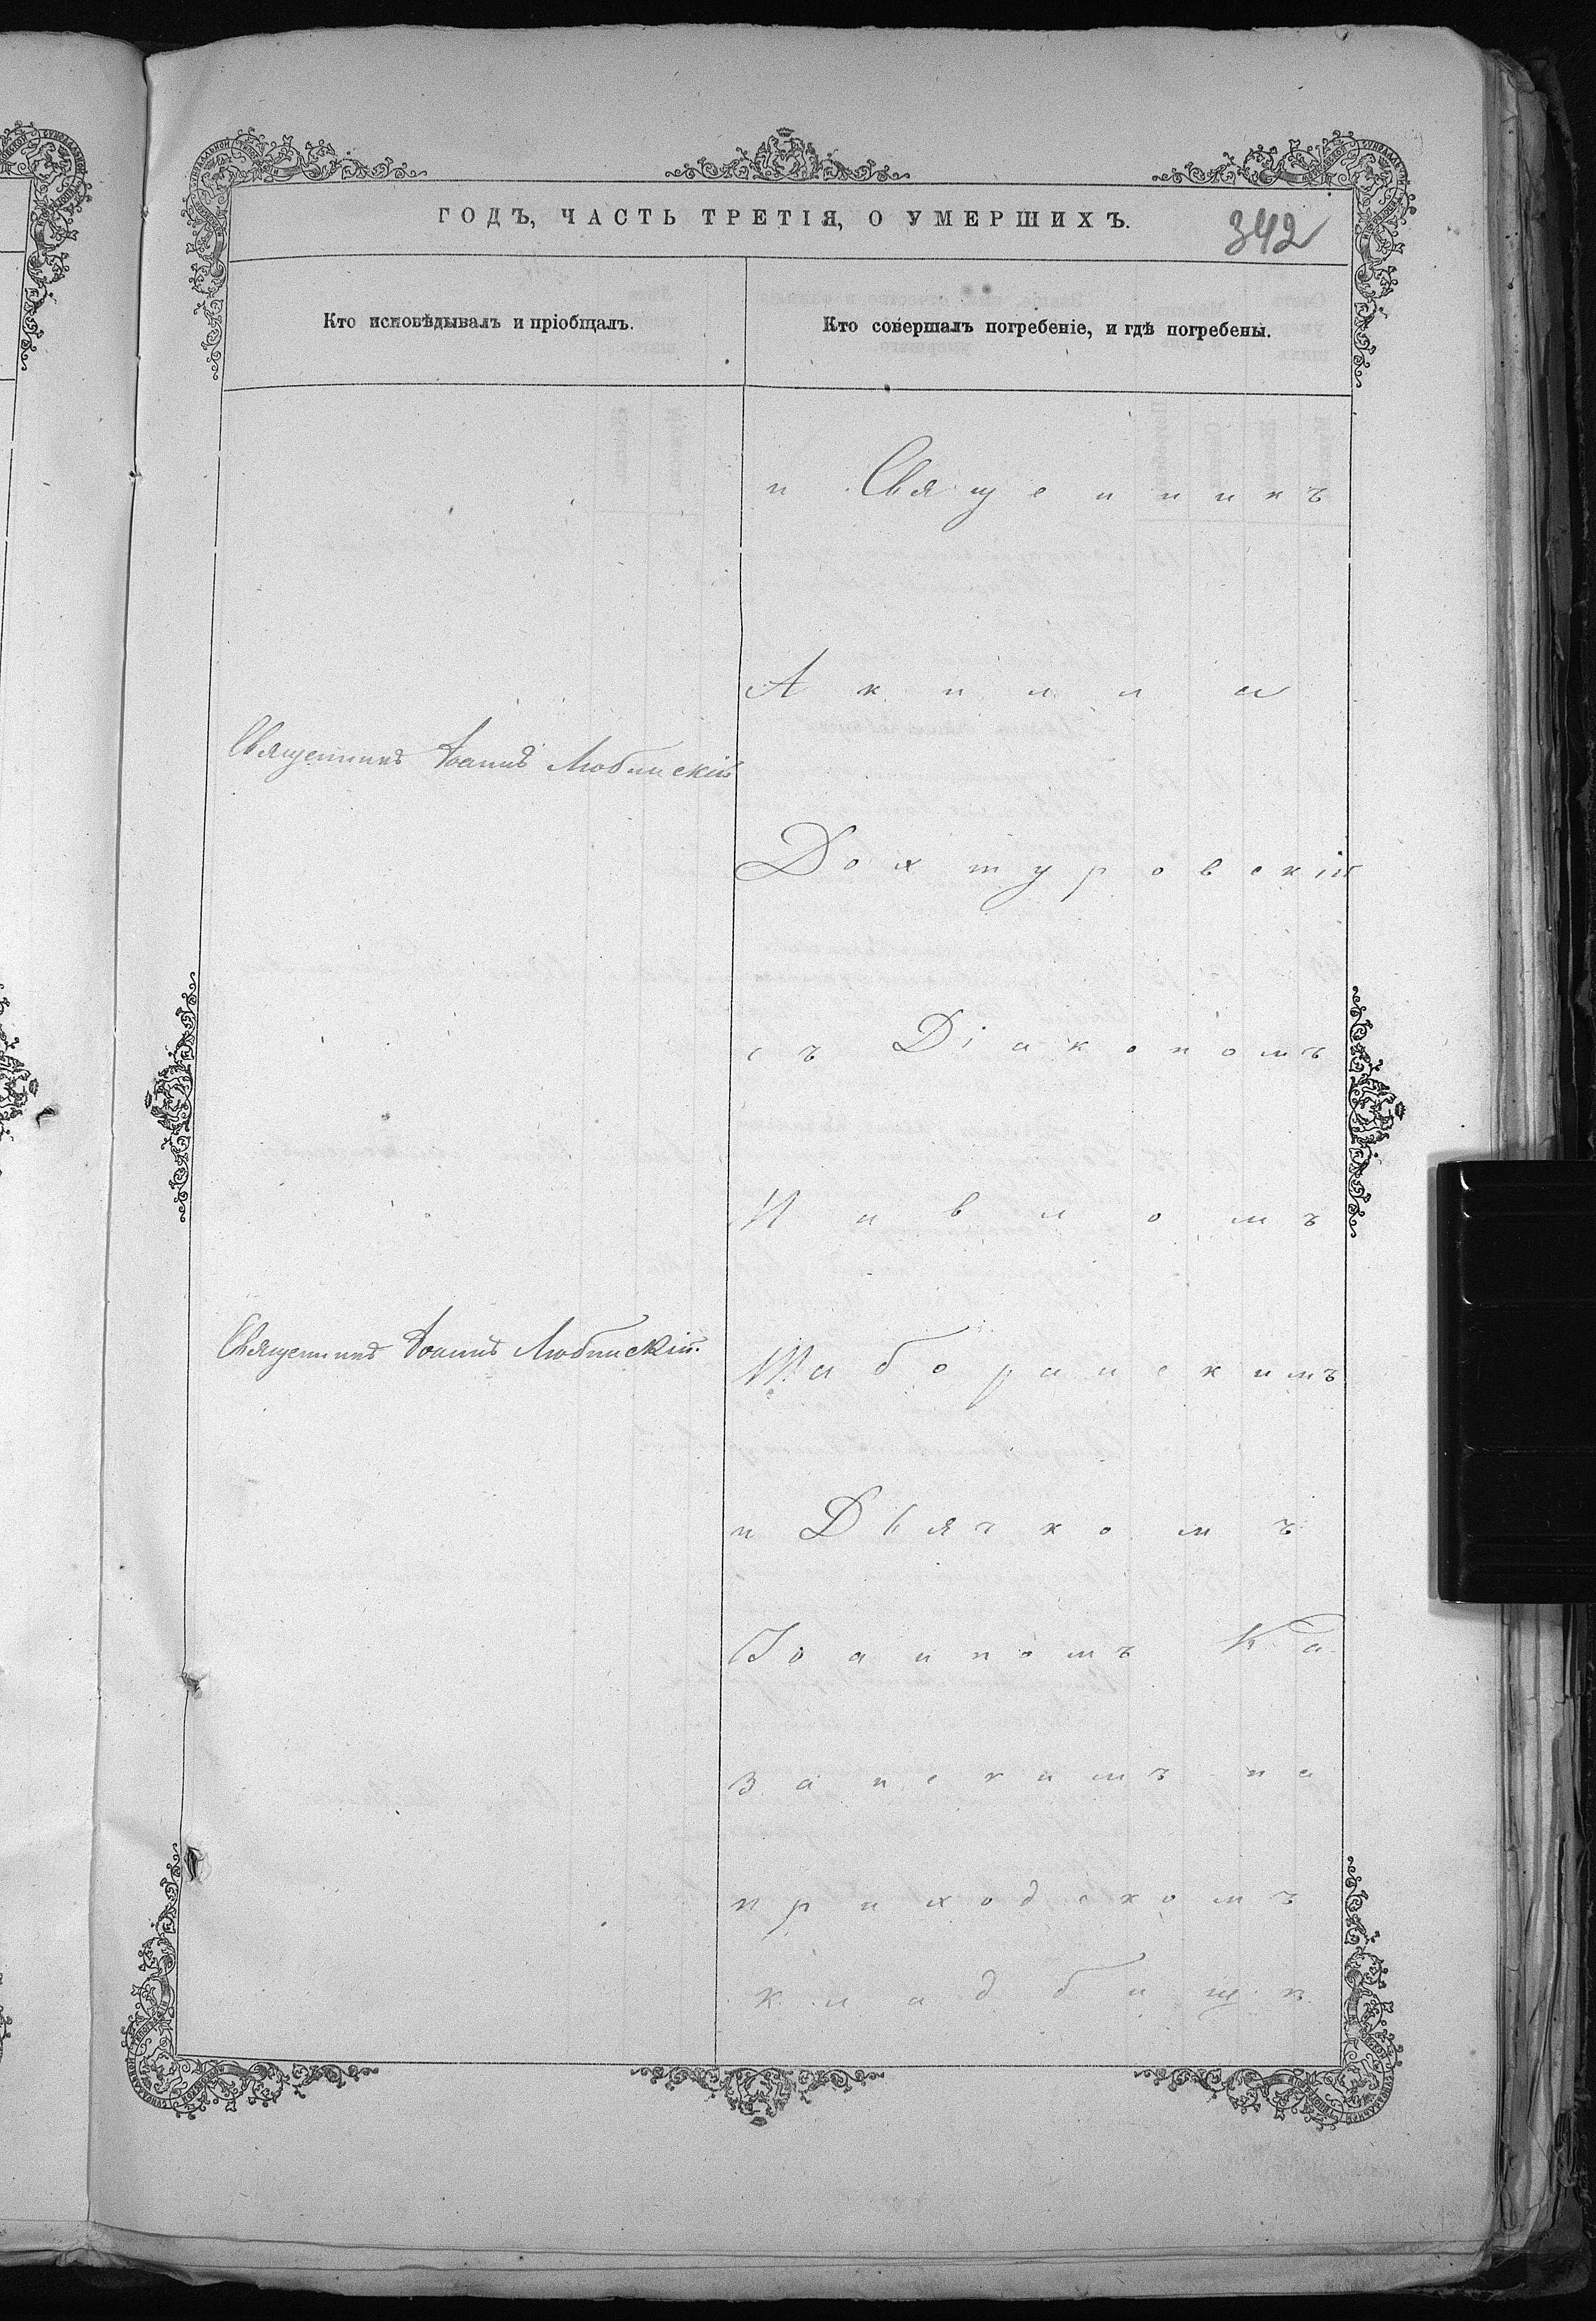 ГОДЪ, ЧАСТЬ ТРЕТІЯ, О УМЕРШИХЪ.
342
Кто исповѣдывалъ и пріобщалъ.
Кто совершалъ погребеніе, и гдѣ погребены.
Священникъ Іоаннъ Любинскій
Священникъ Іоаннъ Любинскій.
и Священникъ
Акила
Дохтуровскій
съ Діакономъ
Павломъ
Шаборанскимъ
и Дьячкомъ
Іоанномъ Ка
занскимъ на
приходскомъ
кладбищѣ